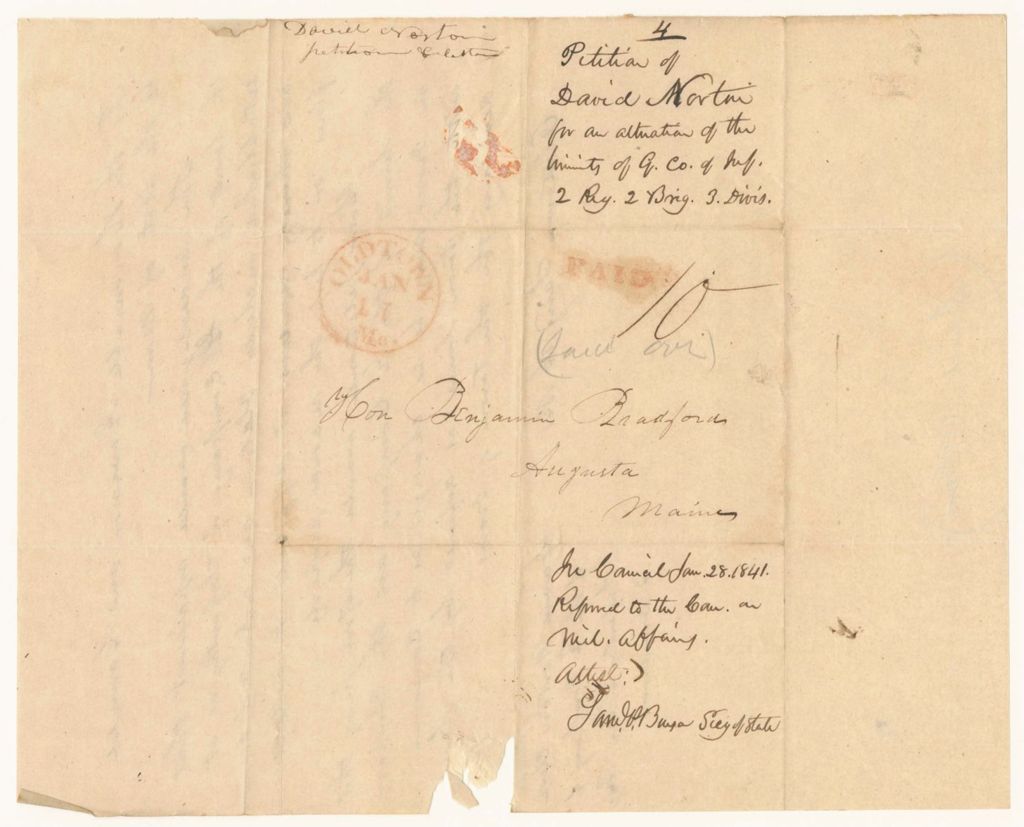 David Norton
petition & letter
4
Petition of
David Norton
for an altuation of the
limits of G. Co. of Inf.
2 Reg. 2 Brig. 3. Divis.
OLDTOWN
JAN
17
Me.
PAID
10
(Laid over)
Hon Benjamin Bradford
Augusta
Maine
In Council Jan. 28. 1841.
Referred to the Com. on
Mil. Affairs.
Attest:
Saml. P. Benson Secy of State